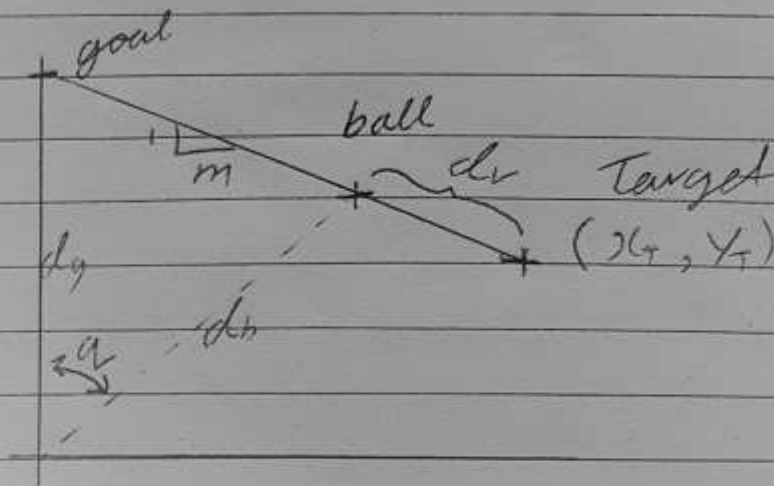 goal
ball
1
m
dr
Target
(x_T, y_T)
dg
db
a